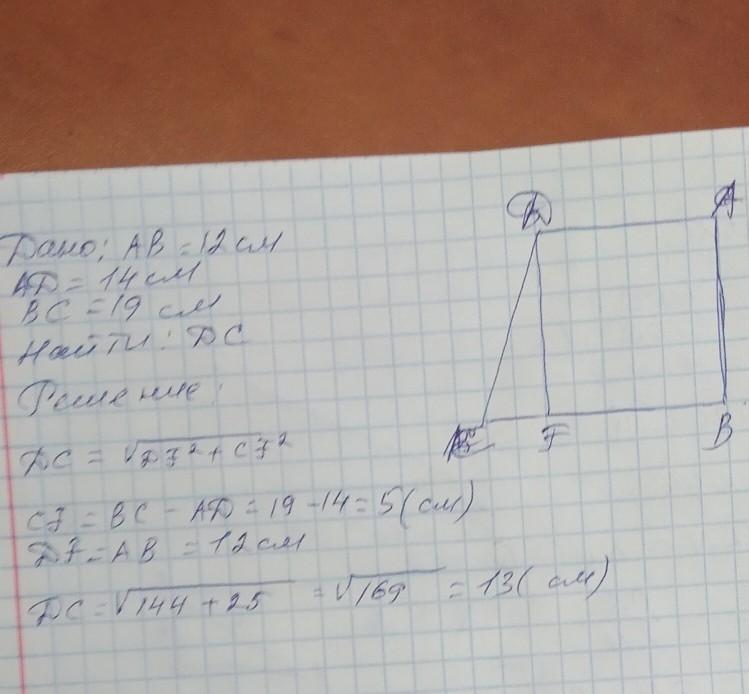 Дано: AB = 12 см
AD = 14 см
BC = 19 см
Найти: DC
Решение:
DC = √DF² + CF²
CF = BC - AD = 19 - 14 = 5 (см)
DF = AB = 12 см
DC = √144 + 25 = √169 = 13 (см)
D A
C F B